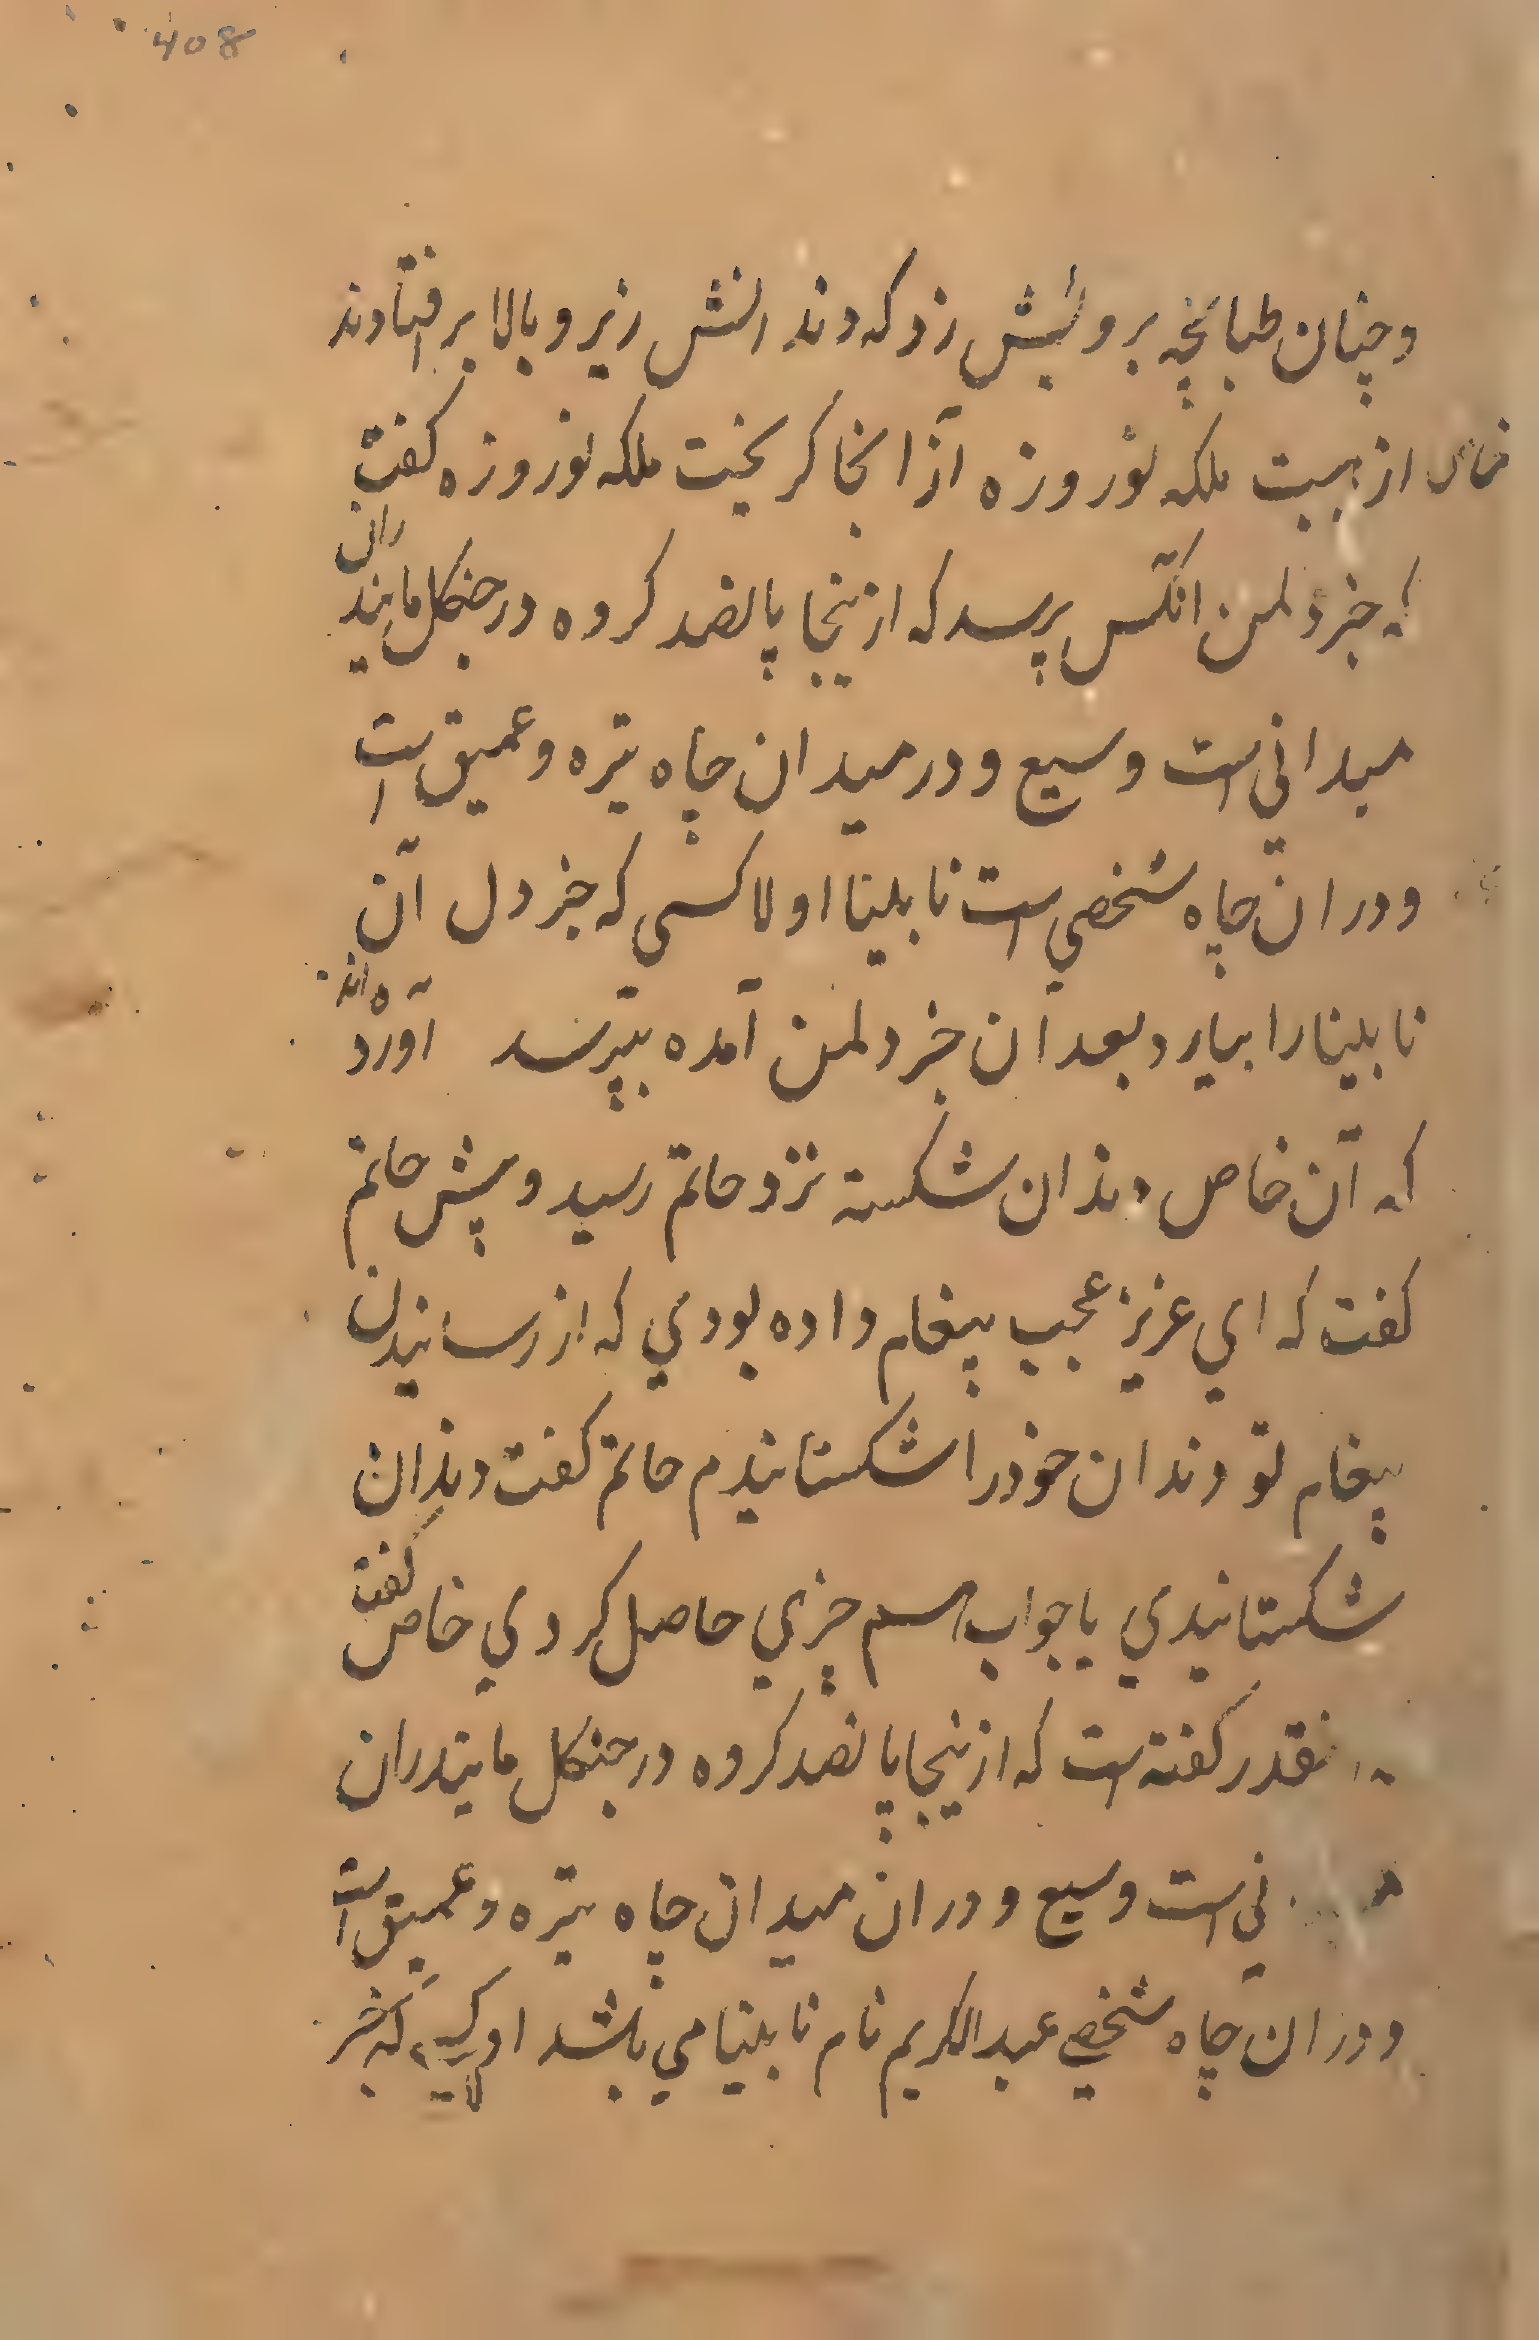 408
و چنان طبانچه بر ولیش زد که دندانش زیر و بالا بر افتادند
خاص از هیبت ملکه نوروزه ازانجا کریخت ملکه نوروزه کفت
که خبر دلمن انکس پرسد که ازینجا پانصد کروه در جنکل مایندران
میدانی است وسیع و در میدان چاه تیره و عمیق است
و دران چاه شخصی است نابلینا اولا کسی که خبر دل آن
نابلینا را بیارد بعد آن خبر دلمن آمده بپرسد آورده اند
که آن خاص دندان شکسته نزد حاتم رسید و پیش حاتم
کفت که ای عزیز عجب پیغام داده بودی که از رسانیدن
پیغام تو دندان خود را شکستانیدم حاتم کفت دندان
شکستانیدی یا جواب هم چیزی حاصل کردی خاص کفت
نقدر کفته است که ازینجا پانصد کروه در جنکل مایندران
نی است وسیع و دران میدان چاه تیره و عمیق است
و دران چاه شخصی عبدالکریم نام نابلینا می باشد اولا کسیکه خبر